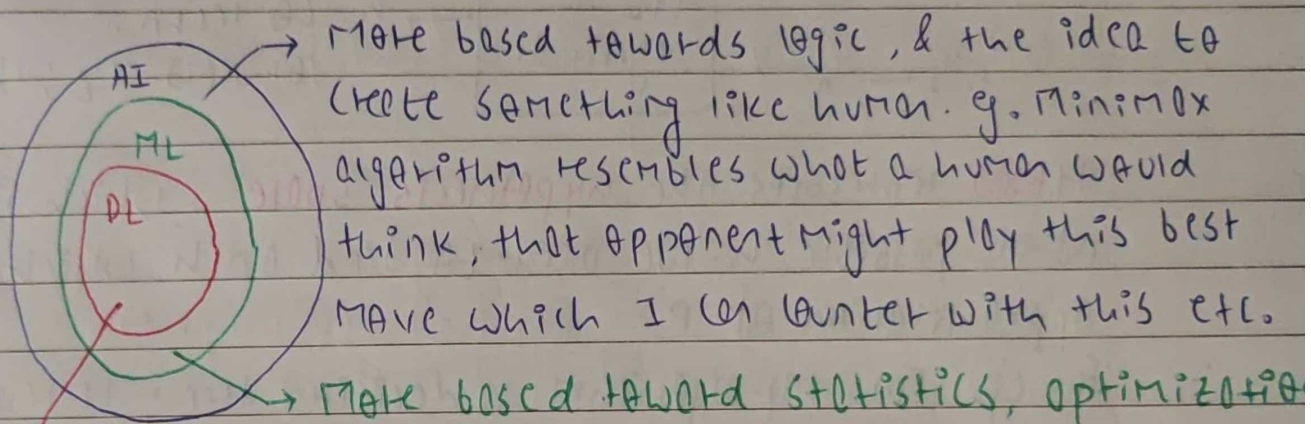 AI
ML
DL
More based towards logic, & the idea to
create something like human. eg. Minimax
algorithm resembles what a human would
think, that opponent might play this best
move which I can counter with this etc.
More based toward statistics, optimizatio